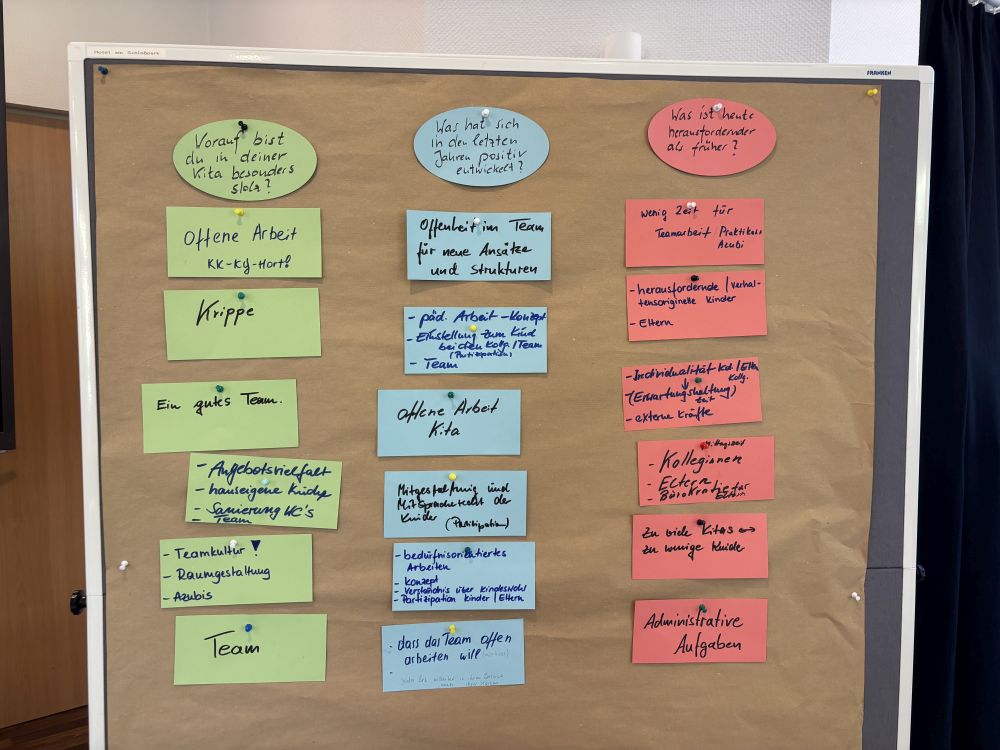 Hotel am Schloßpark
FRANKEN
Vorauf bist
du in deiner
Kita besonders
stolz?
Offene Arbeit
KK-KG-Hort!
Krippe
Ein gutes Team.
- Angebotsvielfalt
- hauseigene Küche
- Sanierung WC's
- Team
- Teamkultur!
- Raumgestaltung
- Azubis
Team
Was hat sich
in den letzten
Jahren positiv
entwickelt?
Offenheit im Team
für neue Ansätze
und Strukturen
- päd. Arbeit - Konzept
- Einstellung zum Kind
bei den Kolg./Team
(Partizipation)
- Team
offene Arbeit
Kita
Mitgestaltung und
Mitspracherecht der
Kinder (Partizipation)
- bedürfnisorientiertes
Arbeiten
- Konzept
- Verständnis über Kindeswohl
- Partizipation Kinder / Eltern
- dass das Team offen
arbeiten will
Was ist heute
herausfordernder
als früher?
wenig Zeit für
Teamarbeit / Praktikas
Azubi
- herausfordernde / verhal-
tensoriginelle Kinder
- Eltern
- Individualität Kd. / Eltern
Kollg.
(Erwartungshaltung)
- externe Kräfte
- Kolleginnen
- Eltern
- Bürokratie für
Eltern
Zu viele Kitas ↔
zu wenige Kinder
Administrative
Aufgaben